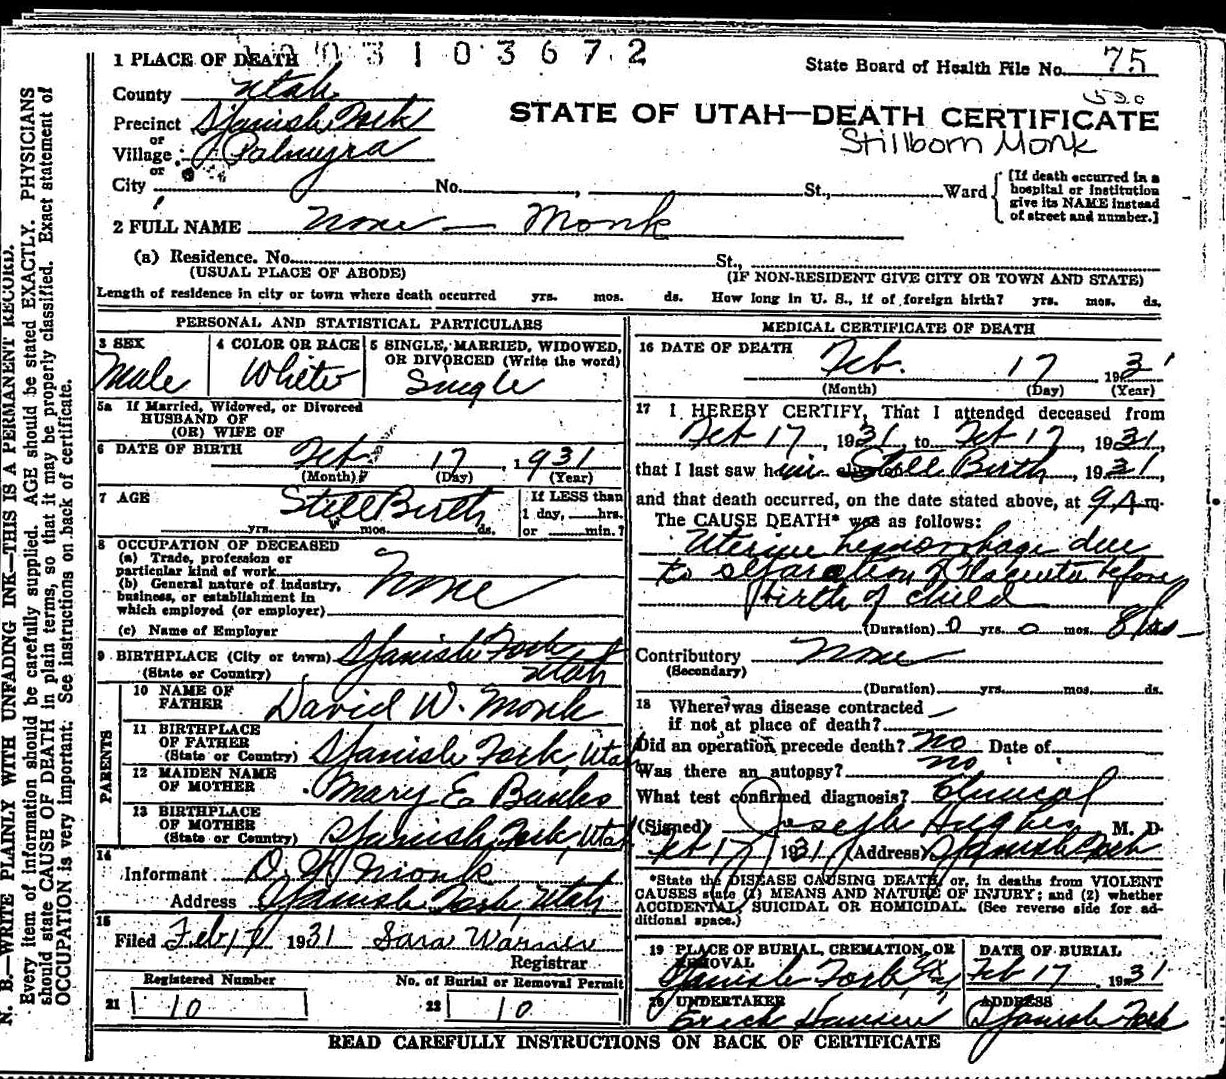 1 PLACE OF DEATH
0 3 1 0 3 6 7 2
State Board of Health File No. 75
County Utah
520
Precinct Spanish Fork
STATE OF UTAH—DEATH CERTIFICATE
or
Village Palmyra
Stillborn Monk
or
City No. , St., Ward
[If death occurred in a
hospital or institution
give its NAME instead
of street and number.]
2 FULL NAME None — Monk
(a) Residence. No. St.,
(USUAL PLACE OF ABODE) (IF NON-RESIDENT GIVE CITY OR TOWN AND STATE)
Length of residence in city or town where death occurred yrs. mos. ds. How long in U. S., if of foreign birth? yrs. mos. ds.
PERSONAL AND STATISTICAL PARTICULARS
3 SEX
Male
4 COLOR OR RACE
White
5 SINGLE, MARRIED, WIDOWED,
OR DIVORCED (Write the word)
Single
5a If Married, Widowed, or Divorced
HUSBAND OF
(OR) WIFE OF
6 DATE OF BIRTH Feb 17, 1931
(Month) (Day) (Year)
7 AGE Still Birth
yrs. mos. ds.
If LESS than
1 day, hrs.
or min.?
8 OCCUPATION OF DECEASED
(a) Trade, profession or
particular kind of work
(b) General nature of industry,
business, or establishment in
which employed (or employer)
None
(c) Name of Employer
9 BIRTHPLACE (City or town) Spanish Fork
(State or Country) Utah
PARENTS
10 NAME OF
FATHER David W. Monk
11 BIRTHPLACE
OF FATHER
(State or Country) Spanish Fork, Utah
12 MAIDEN NAME
OF MOTHER Mary E Banks
13 BIRTHPLACE
OF MOTHER
(State or Country) Spanish Fork, Utah
14
Informant D. W Monk
Address Spanish Fork Utah
15
Filed Feb 17 1931 Sara Warner
Registrar
Registered Number No. of Burial or Removal Permit
21 10 22 10
MEDICAL CERTIFICATE OF DEATH
16 DATE OF DEATH Feb. 17 1931
(Month) (Day) (Year)
17 I HEREBY CERTIFY, That I attended deceased from
Feb 17, 1931, to Feb 17, 1931,
that I last saw him Still Birth, 1931,
and that death occurred, on the date stated above, at 9 A m.
The CAUSE DEATH* was as follows:
Uterine hemorrhage due
to separation of Placenta before
birth of child
(Duration) 0 yrs. 0 mos. 8 hrs
Contributory None
(Secondary)
(Duration) yrs. mos. ds.
18 Where was disease contracted
if not at place of death?
Did an operation precede death? No Date of
Was there an autopsy? No
What test confirmed diagnosis? Clinical
(Signed) Joseph Hughes M. D.
Feb 17, 1931 (Address) Spanish Fork
*State the DISEASE CAUSING DEATH, or, in deaths from VIOLENT
CAUSES state (1) MEANS AND NATURE OF INJURY; and (2) whether
ACCIDENTAL, SUICIDAL OR HOMICIDAL. (See reverse side for ad-
ditional space.)
19 PLACE OF BURIAL, CREMATION, OR
REMOVAL
Spanish Fork City
DATE OF BURIAL
Feb 17, 1931
20 UNDERTAKER
Erick Hansen
ADDRESS
Spanish Fork
READ CAREFULLY INSTRUCTIONS ON BACK OF CERTIFICATE
N. B.—WRITE PLAINLY WITH UNFADING INK—THIS IS A PERMANENT RECORD.
Every item of information should be carefully supplied. AGE should be stated EXACTLY. PHYSICIANS
should state CAUSE OF DEATH in plain terms, so that it may be properly classified. Exact statement of
OCCUPATION is very important. See instructions on back of certificate.